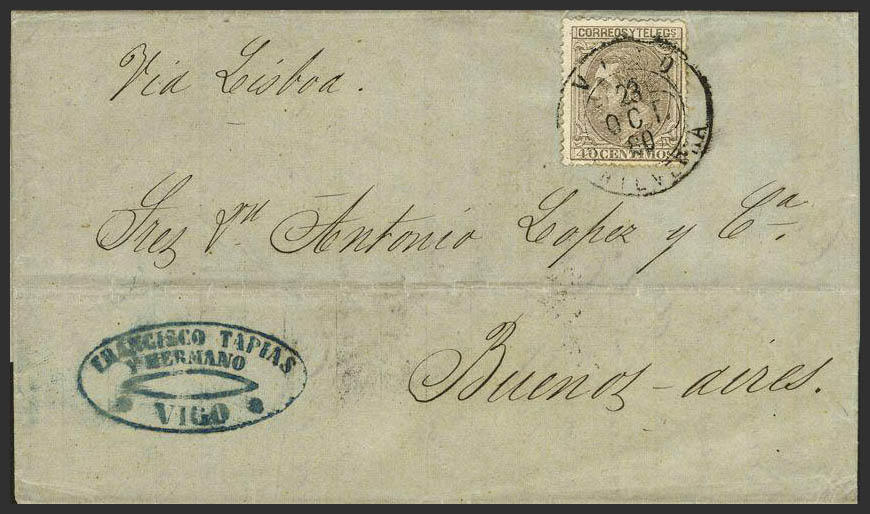 CORREOS Y TELEGS
Via Lisboa.
23
OCT
80
40 CENTIMOS
Sres Vda Antonio Lopez y Ca.
FRANCISCO TAPIAS
Y HERMANO
VIGO
Buenos-aires.